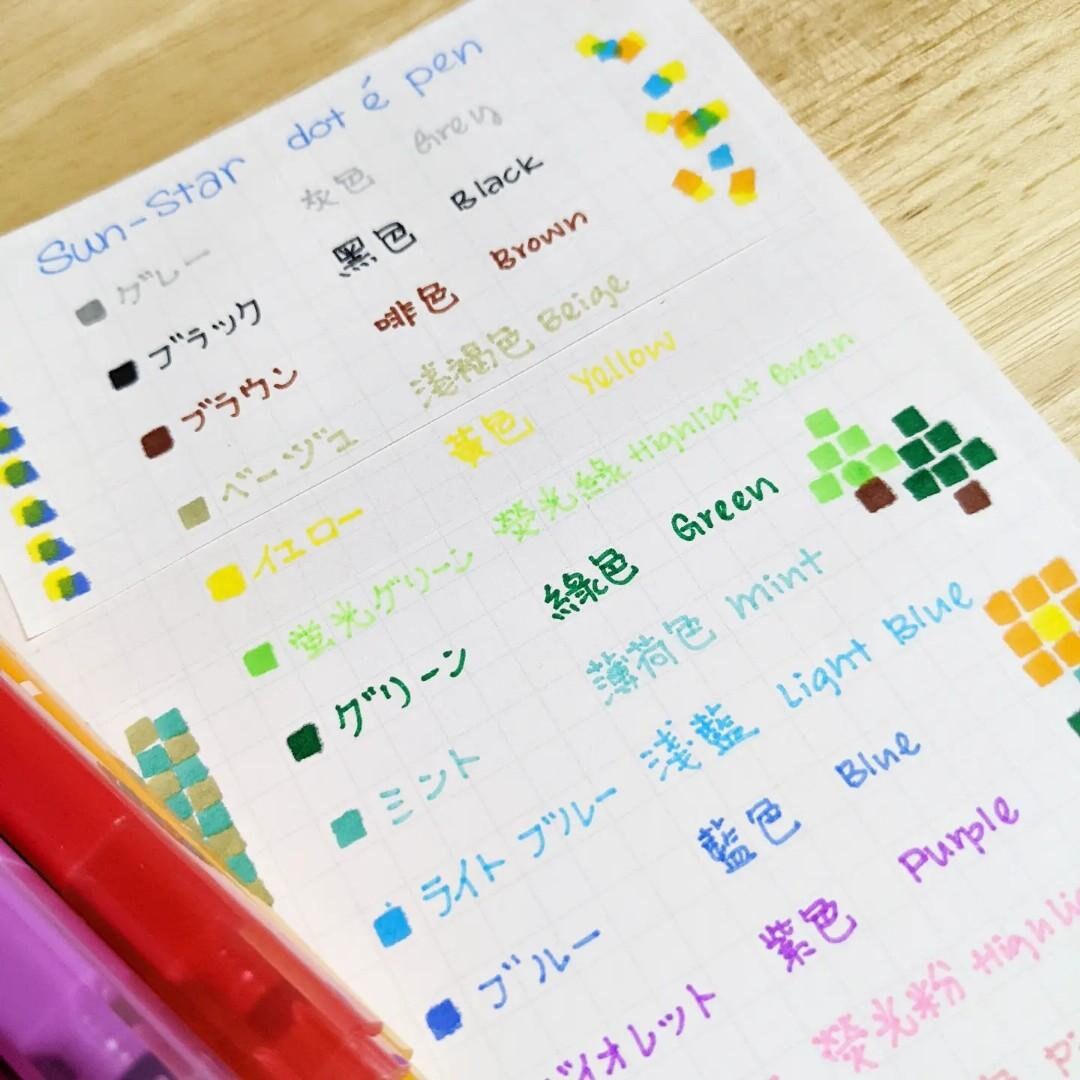 Sun-Star dot é pen
グレー 灰色 Grey
ブラック 黑色 Black
ブラウン 啡色 Brown
ベージュ 浅褐色 Beige
イエロー 黃色 Yellow
蛍光グリーン 熒光綠 Highlight Green
グリーン 綠色 Green
ミント 薄荷色 Mint
ライト ブルー 浅藍 Light Blue
ブルー 藍色 Blue
バイオレット 紫色 Purple
熒光粉